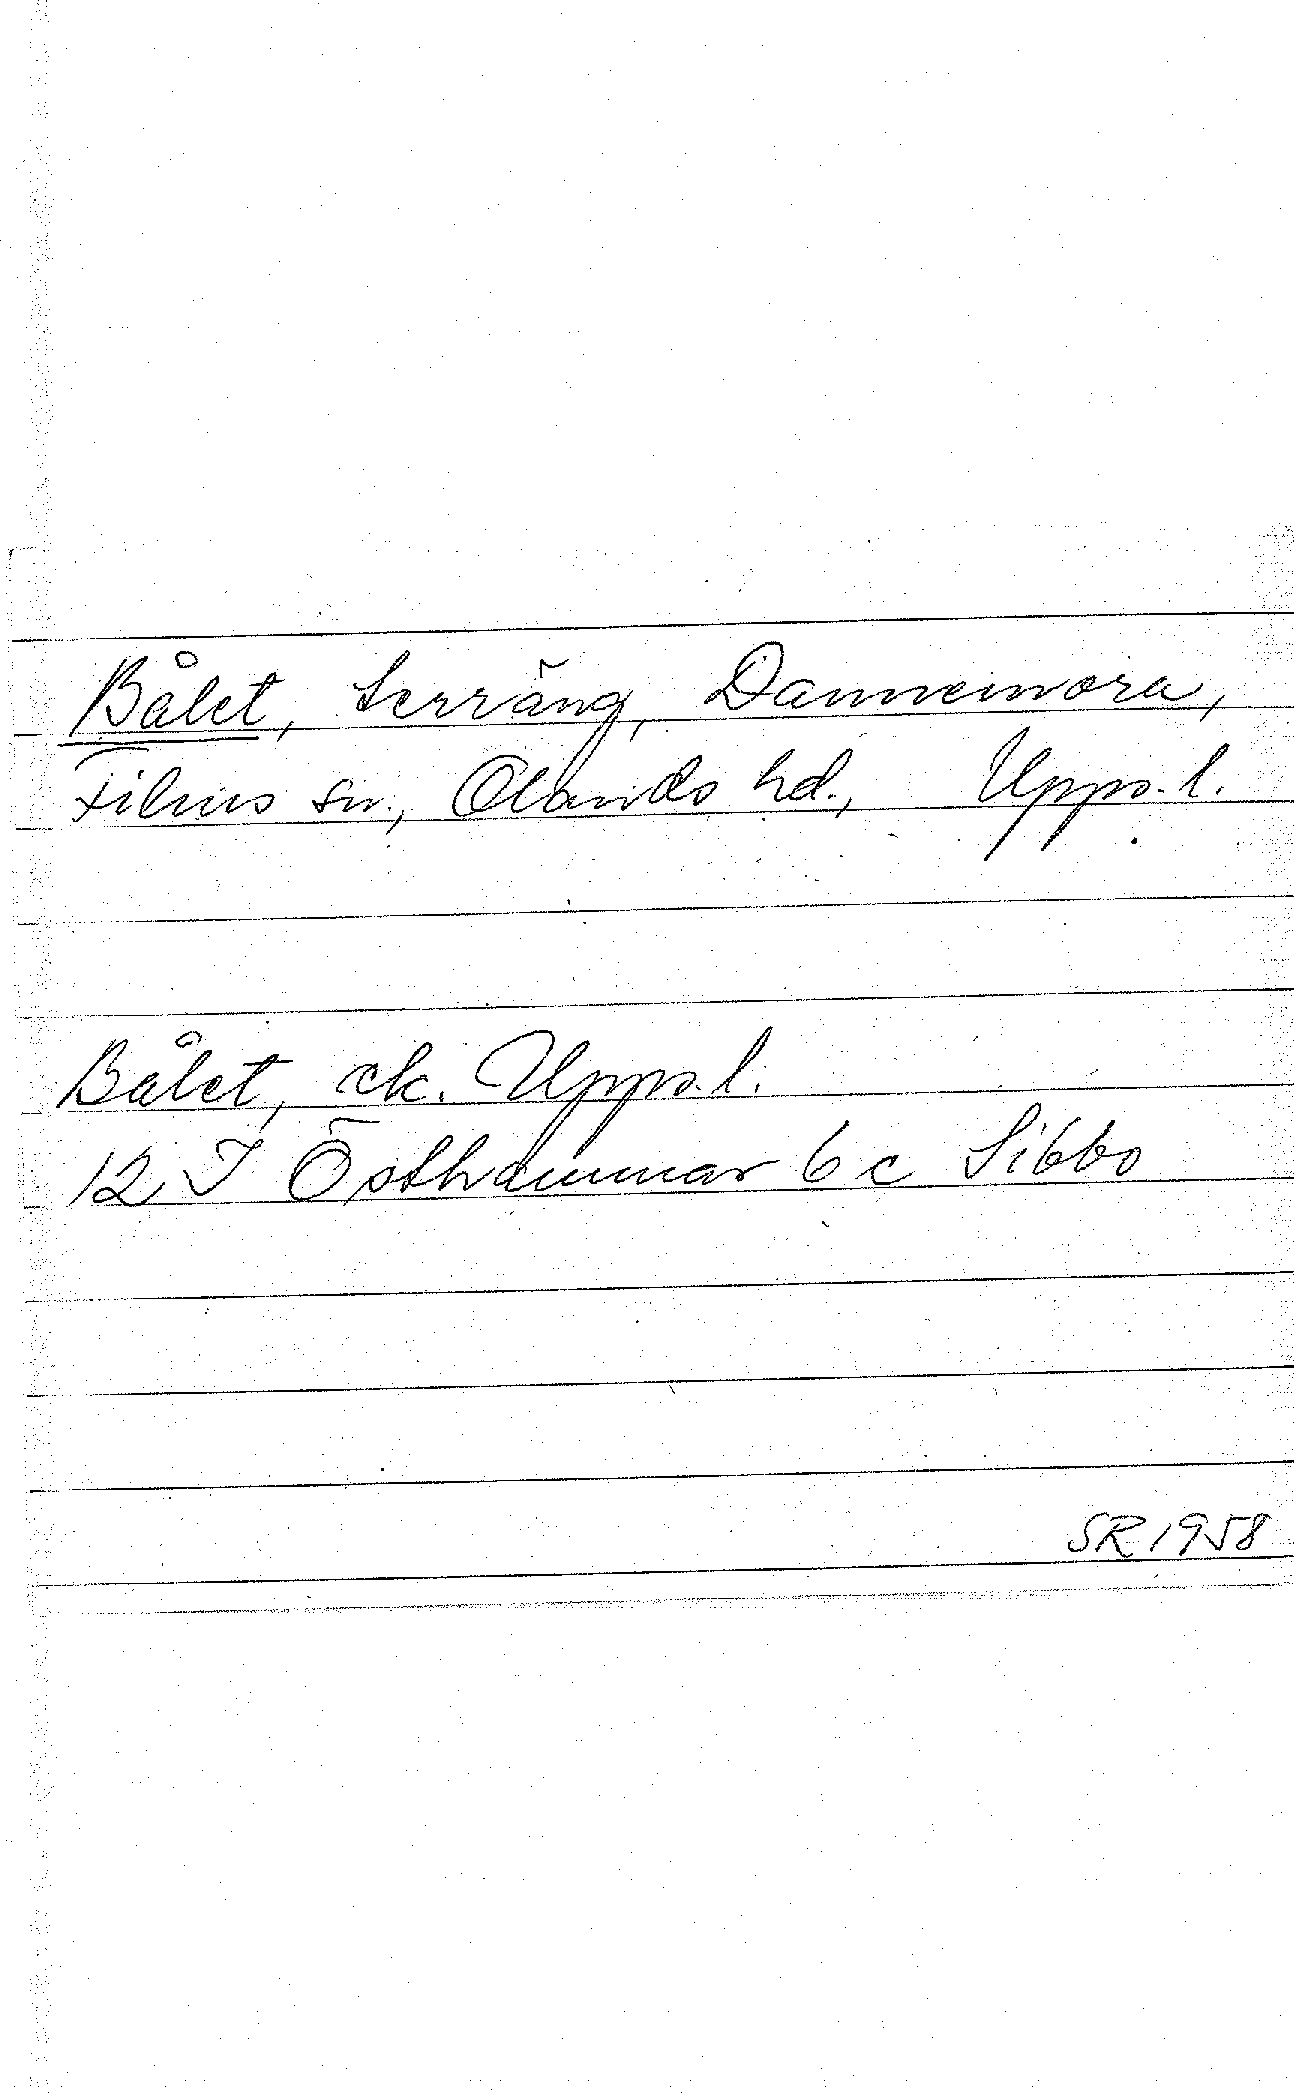 Bålet, terräng, Dannemora,
Films sn., Olands hd., Upps. l.
Bålet, ek. Upps. l.
12 I Östhammar 6 c Sibbo
SR 1958